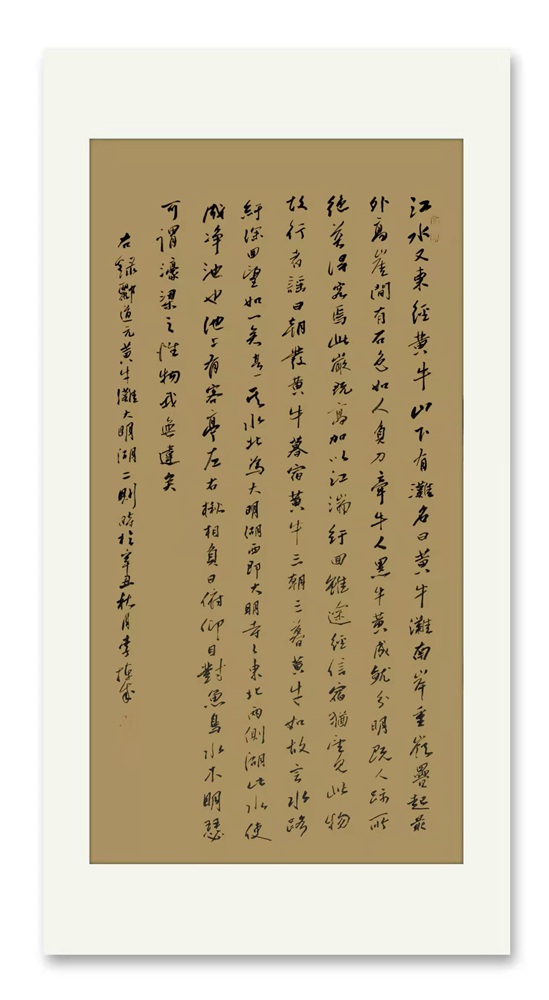 江水又東經黃牛山下有灘名曰黃牛灘南岸重嶺疊起最
外高崖間有石色如人負刀牽牛人黑牛黃成就分明既人跡所
絕莫得究焉此巖既高加以江湍紆回雖途經信宿猶望見此物
故行者謠曰朝發黃牛暮宿黃牛三朝三暮黃牛如故言水路
紆深回望如一矣其水北為大明湖西即大明寺寺東北兩側湖此水便
成淨池也池上有客亭左右楸桐負日俯仰目對魚鳥水木明瑟
可謂濠梁之性物我無違矣
右錄酈道元黃牛灘大明湖二則時於辛丑秋月李